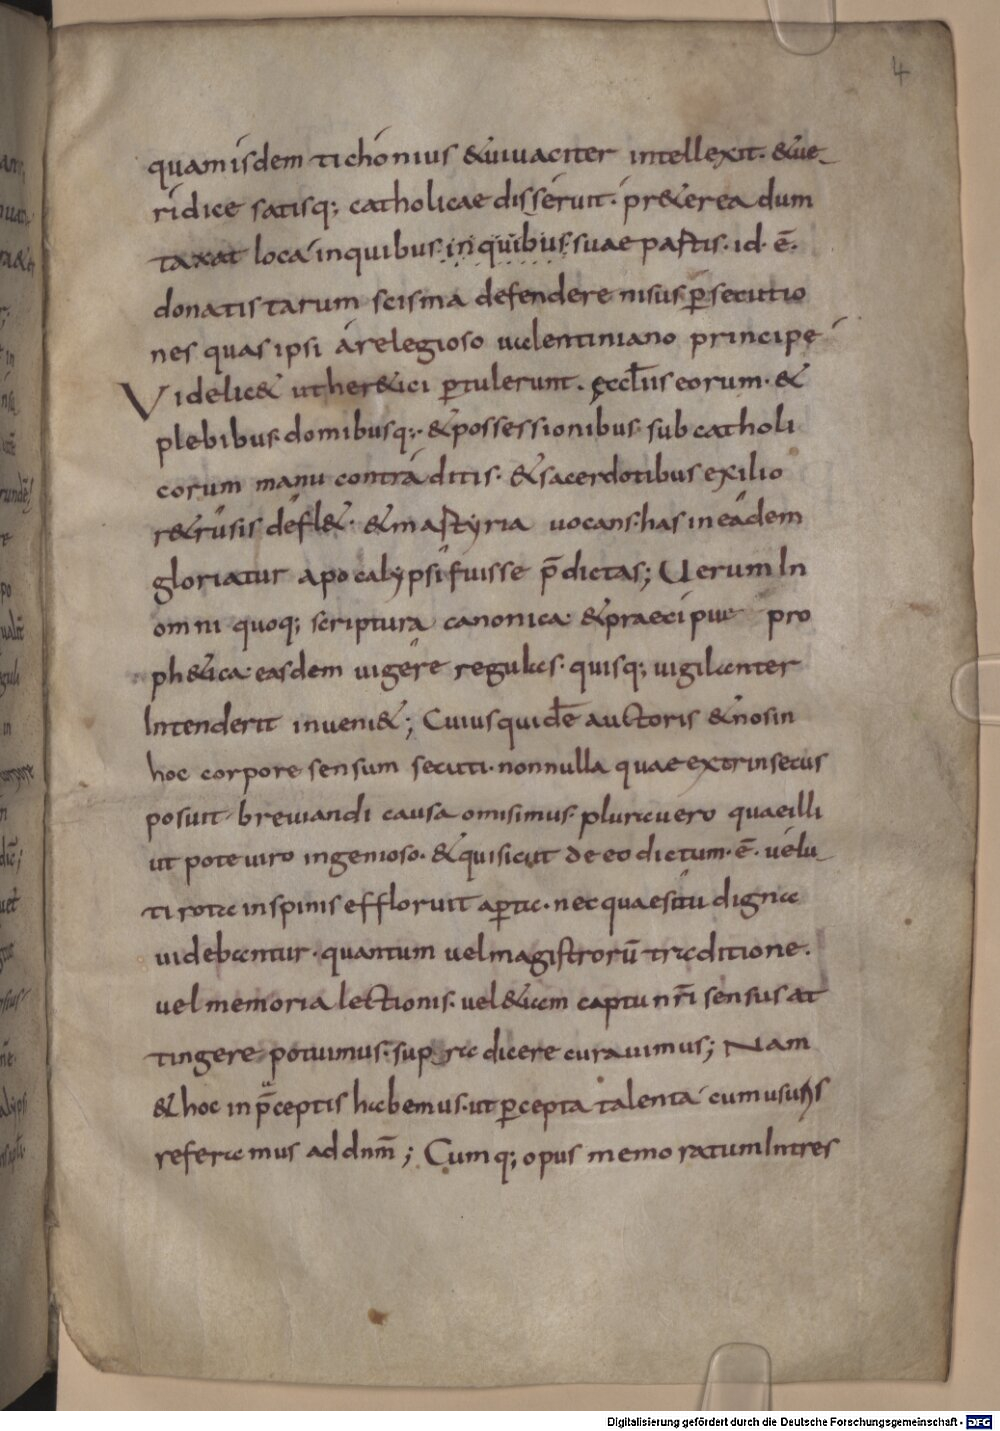 4
quam isdem tichonius &uiuaciter intellexit. &ue
ridice satisq; catholicae disseruit. pr&erea dum
taxat loca inquibus. inquibus. suae partis. id. ē.
donatistarum scisma defendere nisus p̄secutio
nes quas ipsi a relegioso ualentiniano principe
Videlic& uther&ici ptulerunt. ęccl̄iis eorum. &
plebibus. domibusq;. &possessionibus. sub catholi
corum manu contraditis. &sacerdotibus exilio
r&rusis defl&. &martyria uocans. has in eadem
gloriatur apocalypsi fuisse p̄dictas; Uerum In
omni quoq; scriptura canonica. &praecipue pro
ph&ica. easdem uigere regulas. quisq; uigilanter
Intenderit inueni&; Cuius quidē auctoris &nos in
hoc corpore sensum secuti. nonnulla quae extrinsecus
posuit. breuiandi causa omisimus. plura uero quae illi
ut pote uiro ingenioso. &quisicut de eo dictum. ē. uelu
ti rota in spinis effloruit apta. nec quaesitu digna
uidebantur. quantum uel magistrorū traditione.
uel memoria lectionis. uel &iam captu nr̄i sensus at
tingere potuimus. sup ra dicere curauimus; Nam
&hoc in p̄ceptis habemus. ut pcepta talenta cum usuris
referamus ad dnm̄; Cumq; opus memoratum Intres
Digitalisierung gefördert durch die Deutsche Forschungsgemeinschaft - DFG